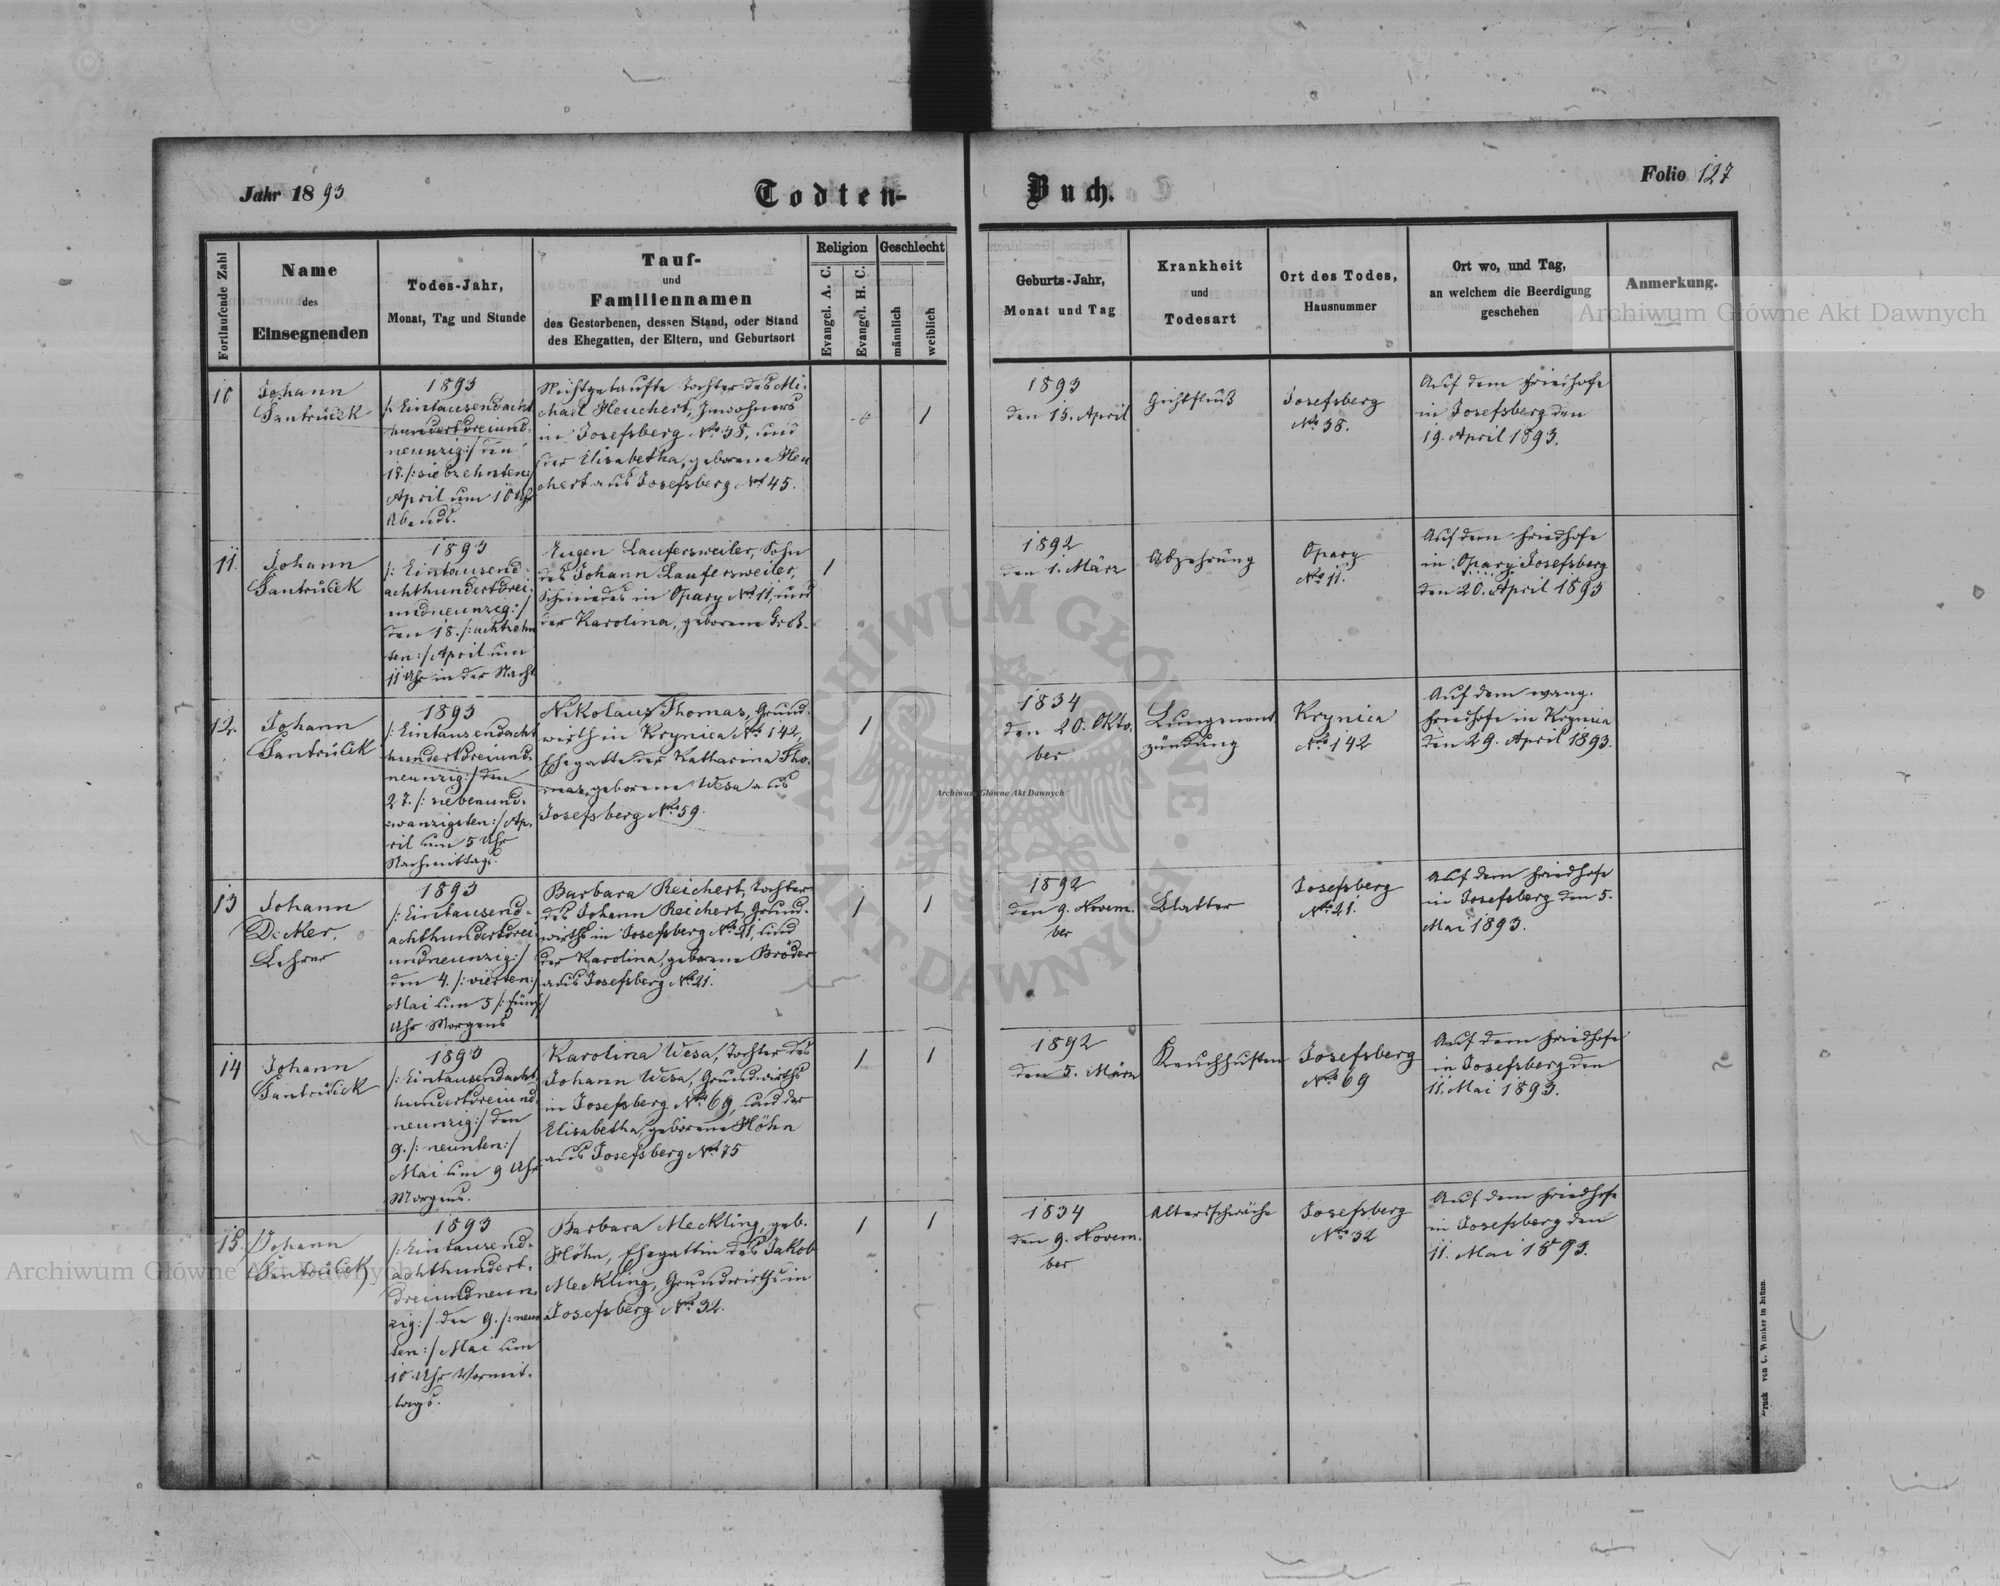 Jahr 1893
Todten-
Buch.
Folio 127
Fortlaufende Zahl
Name
des
Einsegnenden
Todes-Jahr,
Monat, Tag und Stunde
Tauf-
und
Familiennamen
des Gestorbenen, dessen Stand, oder Stand
des Ehegatten, der Eltern, und Geburtsort
Religion
Evangel. A. C.
Evangel. H. C.
Geschlecht
männlich
weiblich
Geburts-Jahr,
Monat und Tag
Krankheit
und
Todesart
Ort des Todes,
Hausnummer
Ort wo, und Tag,
an welchem die Beerdigung
geschehen
Anmerkung.
10
Johann
Santrůček
1893
/: Eintausendacht
hundertdreiund-
neunzig :/ den
/: siebzehnten :/
April um 10 Uhr
Abends.
Nichtgetaufte Tochter des Mi-
chael Heuchert, Inwohners
in Josefsberg No 38, und
der Elisabetha, geborene Heu
chert aus Josefsberg No 45.
1
1893
den 15. April
Gichtfluß
Josefsberg
No 38.
Auf dem Friedhofe
in Josefsberg den
19. April 1893.
11.
Johann
Santrůček
1893
/: Eintausend-
achthundertdrei-
undneunzig :/
den 18. /: achtzehn
ten :/ April um
11 Uhr in der Nacht
Eugen Laufersweiler, Sohn
des Johann Laufersweiler,
Schmiedes in Opary No 11, und
der Karolina, geborene Groß.
1
1892
den 1. März
Abzehrung
Opary
No 11.
Auf dem Friedhofe
in Opary Josefsberg
den 20. April 1893
12.
Johann
Santrůček
1893
/: Eintausendacht
hundertdreiund-
neunzig :/ den
27. /: siebenund-
zwanzigsten :/ Ap-
ril um 5 Uhr
Nachmittags.
Nikolaus Thomas, Grund-
wirth in Krynica No 142,
Ehegatte der Katharina Tho-
mas, geborene Wesa aus
Josefsberg No 59.
1
1834
den 20. Okto-
ber
Lungenent-
zündung
Krynica
No 142
Auf dem evang.
Friedhofe in Krynica
den 29. April 1893.
13
Johann
Decker,
Lehrer
1893
/: Eintausend-
achthundertdrei-
undneunzig :/
den 4. /: vierten :/
Mai um 5 /: fünf :/
Uhr Morgens
Barbara Reichert, Tochter
des Johann Reichert, Grund-
wirths in Josefsberg No 21, und
der Karolina, geborene Bröder
aus Josefsberg No 21.
1
1
1892
den 9. Novem-
ber
Blatter
Josefsberg
No 21.
Auf dem Friedhofe
in Josefsberg den 5.
Mai 1893.
14
Johann
Santrůček
1893
/: Eintausendacht
hundertdreiund-
neunzig :/ den
9. /: neunten :/
Mai um 9 Uhr
Morgens.
Karolina Wesa, Tochter des
Johann Wesa, Grundwirths
in Josefsberg No 69, und der
Elisabetha, geborene Höhn
aus Josefsberg No 75
1
1
1892
den 5. März
Keuchhusten
Josefsberg
No 69
Auf dem Friedhofe
in Josefsberg den
11. Mai 1893.
15.
Johann
Santrůček
1893
/: Eintausend-
achthundert-
dreiundneun-
zig :/ den 9. /: neun
ten :/ Mai um
10 Uhr Vormit-
tags.
Barbara Meckling, geb.
Höhn, Ehegattin des Jakob
Meckling, Grundwirths in
Josefsberg No 32.
1
1
1834
den 9. Novem-
ber
Altersschwäche
Josefsberg
No 32
Auf dem Friedhofe
in Josefsberg den
11. Mai 1893.
Archiwum Główne Akt Dawnych
Archiwum Główne Akt Dawnych
Archiwum Główne Akt Dawnych
ARCHIWUM GŁÓWNE
AKT DAWNYCH